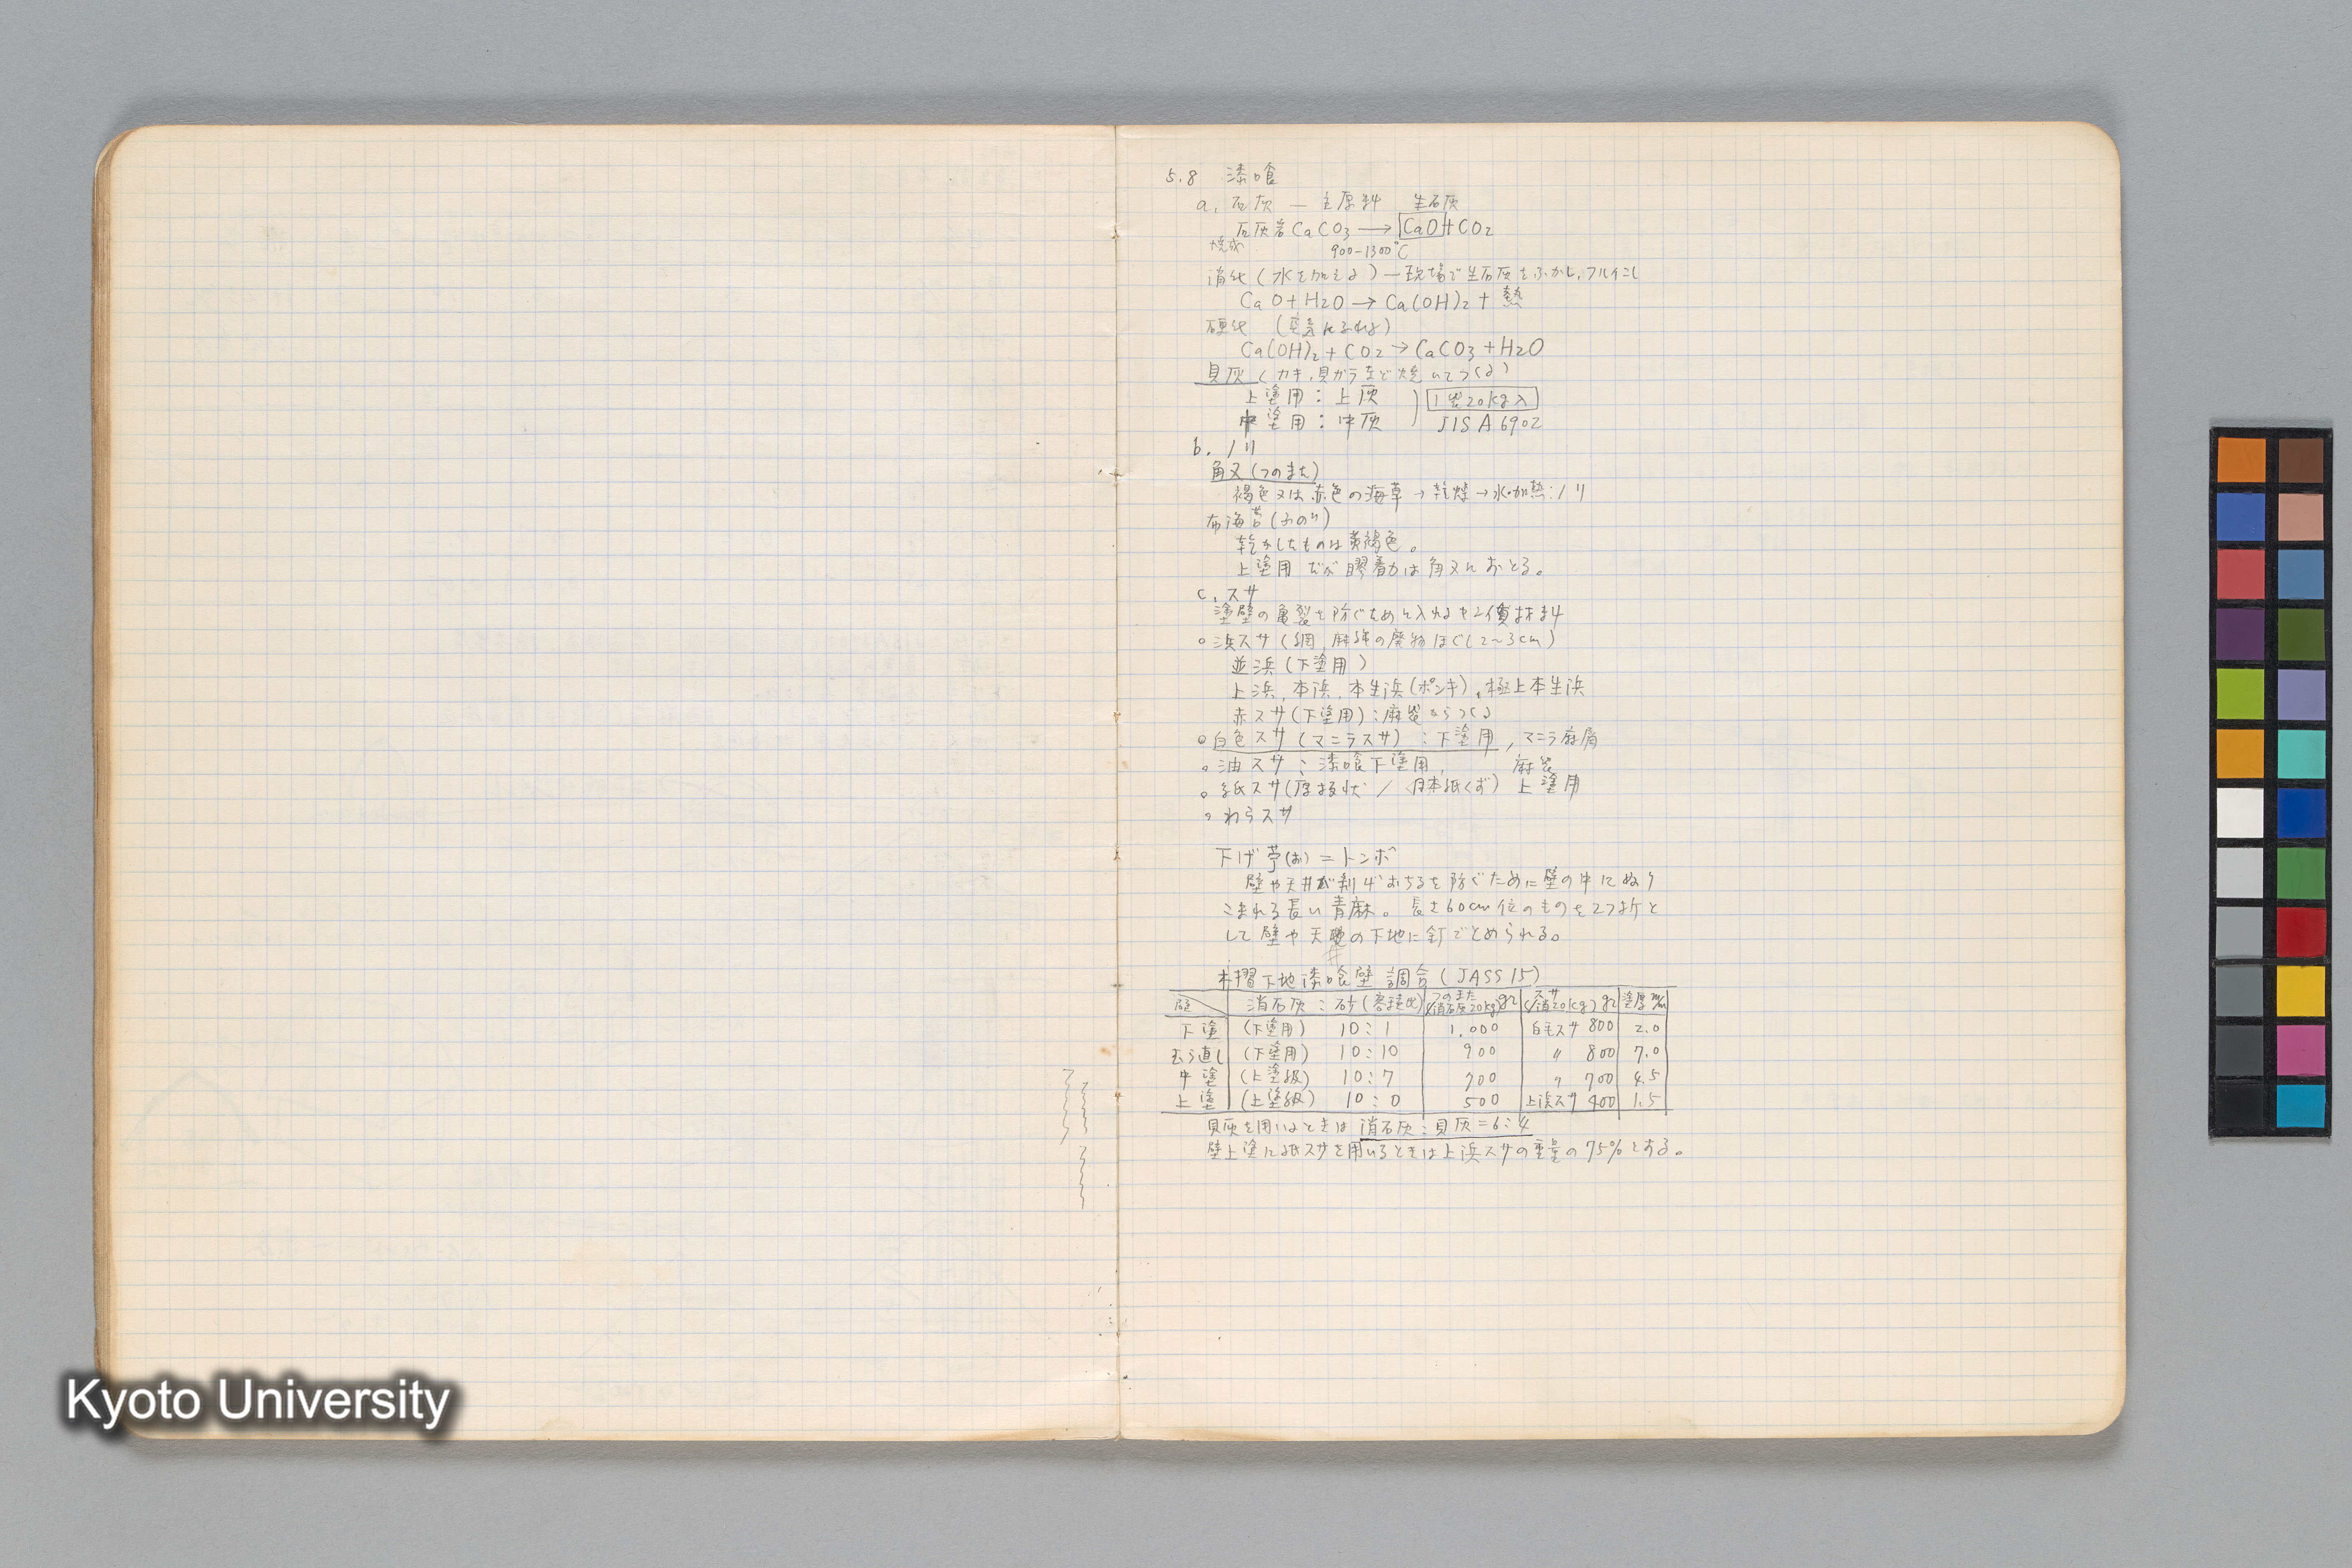 5.8 漆喰
a. 石灰 — 主原料 生石灰
石灰岩 CaCO3 → CaO + CO2
焼成 900-1300°C
消化(水を加える)—現場で生石灰をふかし、フルイこし
CaO + H2O → Ca(OH)2 + 熱
硬化 (空気にふれる)
Ca(OH)2 + CO2 → CaCO3 + H2O
貝灰(カキ、貝ガラなど焼いてつくる)
上塗用:上灰 1袋20kg入
中塗用:中灰 JIS A 6902
b. ノリ
角又(つのまた)
褐色又は赤色の海草→乾燥→水・加熱:ノリ
布海苔(ふのり)
乾かしたものは黄褐色。
上塗用だが膠着力は角又におとる。
c. スサ
塗壁の亀裂を防ぐために入れるセンイ質材料
○浜スサ(網、麻綿の廃物ほぐし2~3cm)
並浜(下塗用)
上浜、本浜、本生浜(ポンキ)、極上本生浜
赤スサ(下塗用):麻袋からつくる
○白色スサ(マニラスサ):下塗用, マニラ麻屑
○油スサ:漆喰下塗用, 麻袋
○紙スサ(厚板状/日本紙くず)上塗用
○わらスサ
下げ苧(お)=トンボ
壁や天井が剥げおちるを防ぐために壁の中にぬり
こまれる長い青麻。長さ60cm位のものを2つ折と
して壁や天井の下地に釘でとめられる。
木摺下地漆喰壁 調合(JASS 15)
壁 消石灰:砂(容積比) つのまた(消石灰20kg)gr スサ(消20kg)gr 塗厚m/m
下塗 (下塗用) 10:1 1.000 白毛スサ 800 2.0
むら直し (下塗用) 10:10 900 〃 800 7.0
中塗 (上塗級) 10:7 700 〃 700 4.5
上塗 (上塗級) 10:0 500 上浜スサ 400 1.5
貝灰を用いるときは 消石灰:貝灰=6:4
壁上塗に紙スサを用いるときは上浜スサの重量の75%とする。
Kyoto University